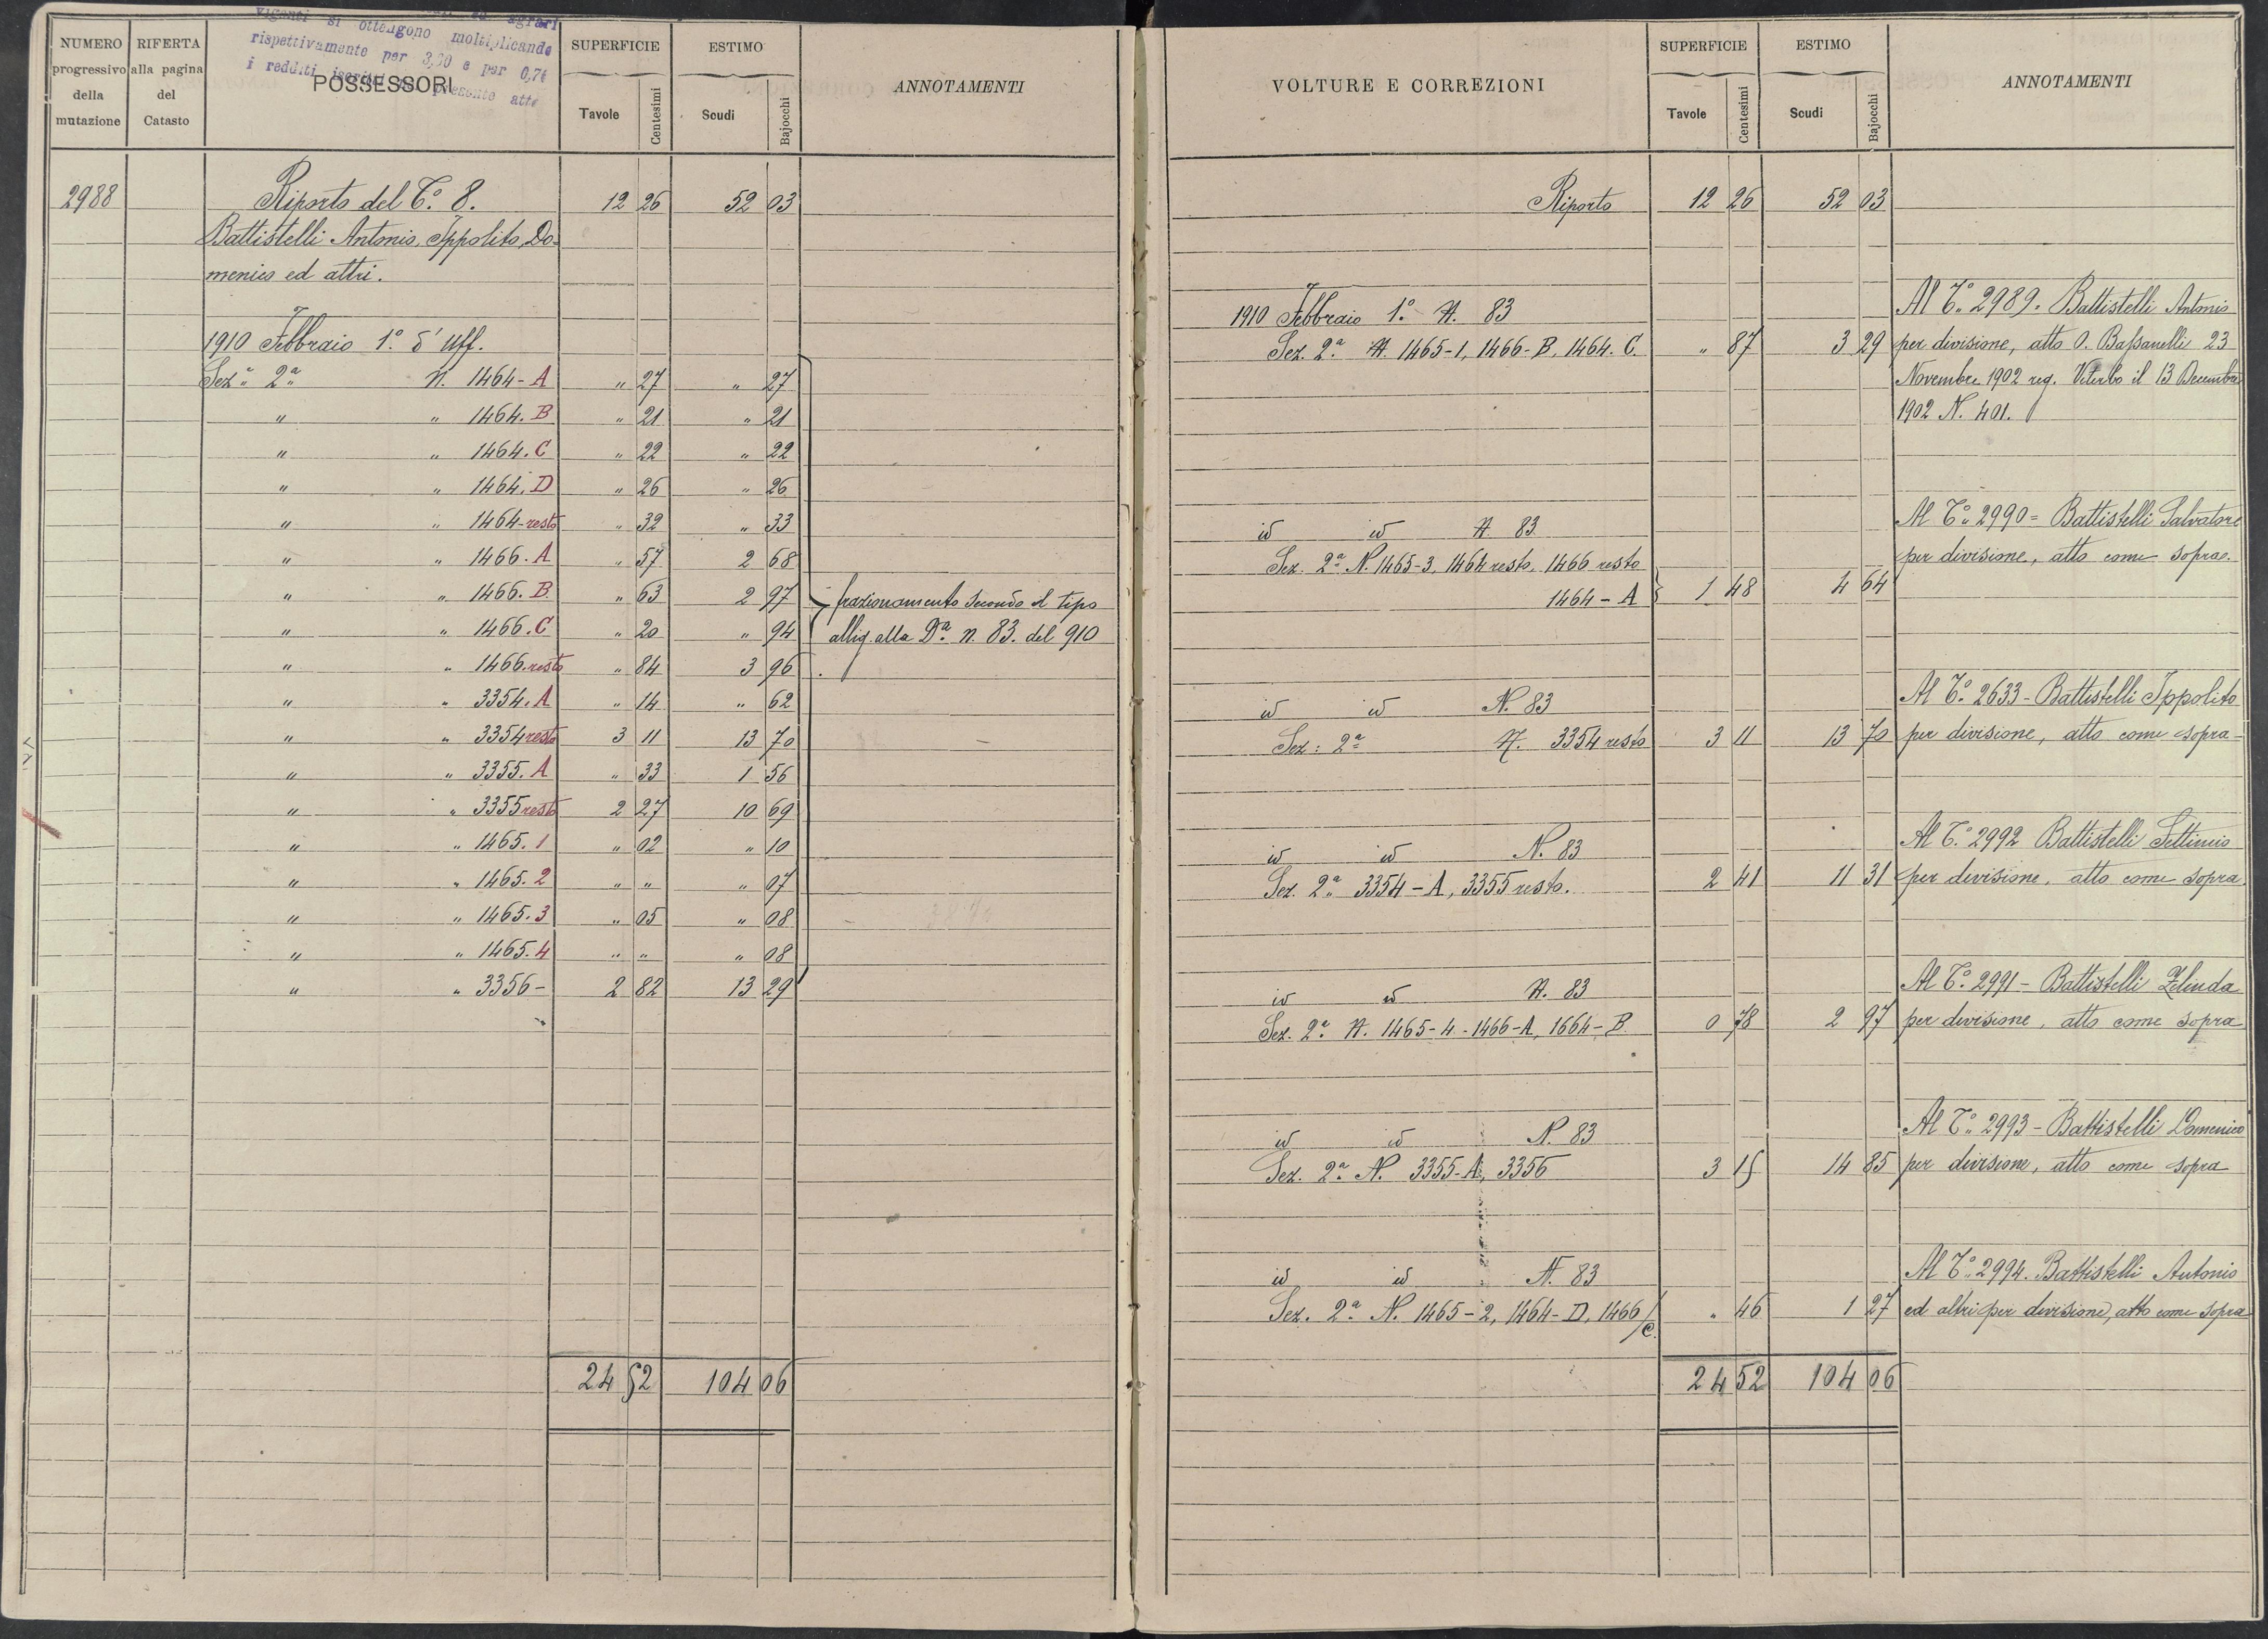 NUMERO progressivo della mutazione | RIFERTA alla pagina del Catasto | POSSESSORI | SUPERFICIE Tavole Centesimi | ESTIMO Scudi Bajocchi | ANNOTAMENTI
si ottengono moltiplicando
rispettivamente per 3,00 e per 0,74
i redditi presente atto
2988 | Riporto del T.° 8. | 12 26 | 52 03
Battistelli Antonio, Ippolito, Do-
menico ed altri.
1910 Febbraio 1.° d'Uff.
Sez.e 2a N. 1464-A | " 27 | " 27
" " 1464. B | " 21 | " 21
" " 1464. C | " 22 | " 22
" " 1464. D | " 26 | " 26
" " 1464-resto | " 32 | " 33
" " 1466. A | " 57 | 2 68
" " 1466. B. | " 63 | 2 97 | frazionamento secondo il tipo
" " 1466. C | " 20 | " 94 | allig. alla Da. n. 83. del 910
" " 1466. resto | " 84 | 3 96
" " 3354. A | " 14 | " 62
" " 3354 resto | 3 11 | 13 70
" " 3355. A | " 33 | 1 56
" " 3355 resto | 2 27 | 10 69
" " 1465. 1 | " 02 | " 10
" " 1465. 2 | " " | " 07
" " 1465. 3 | " 05 | " 08
" " 1465. 4 | " " | " 08
" " 3356- | 2 82 | 13 29
24 52 | 104 06
VOLTURE E CORREZIONI | SUPERFICIE Tavole Centesimi | ESTIMO Scudi Bajocchi | ANNOTAMENTI
Riporto | 12 26 | 52 03
Al T.° 2989. Battistelli Antonio
1910 Febbraio 1.° N. 83
Sez. 2a. N. 1465-1, 1466-B, 1464. C. | " 87 | 3 29 | per divisione, atto O. Bassanelli 23
Novembre 1902 reg. Viterbo il 13 Decembre
1902 N. 401.
Al T.° 2990= Battistelli Salvatore
id id N. 83
per divisione, atto come sopra.
Sez. 2a N. 1465-3, 1464 resto, 1466 resto
1464-A } | 1 48 | 4 64
Al T.° 2633- Battistelli Ippolito
id id N. 83
Sez: 2a N. 3354 resto | 3 11 | 13 70 | per divisione, atto come sopra-
Al T.° 2992 Battistelli Settimio
id id N. 83
Sez. 2a 3354-A, 3355 resto. | 2 41 | 11 31 | per divisione, atto come sopra.
Al T.° 2991- Battistelli Zelinda
id id N. 83
Sez. 2a N. 1465-4-1466-A, 1664-B. | 0 78 | 2 97 | per divisione, atto come sopra
Al T.° 2993- Battistelli Domenico
id id N. 83
Sez. 2a N. 3355-A, 3356 | 3 15 | 14 85 | per divisione, atto come sopra
Al T.° 2994. Battistelli Antonio
id id N. 83
Sez. 2a N. 1465-2, 1464-D, 1466/C. | " 46 | 1 27 | ed altri per divisione, atto come sopra
24 52 | 104 06